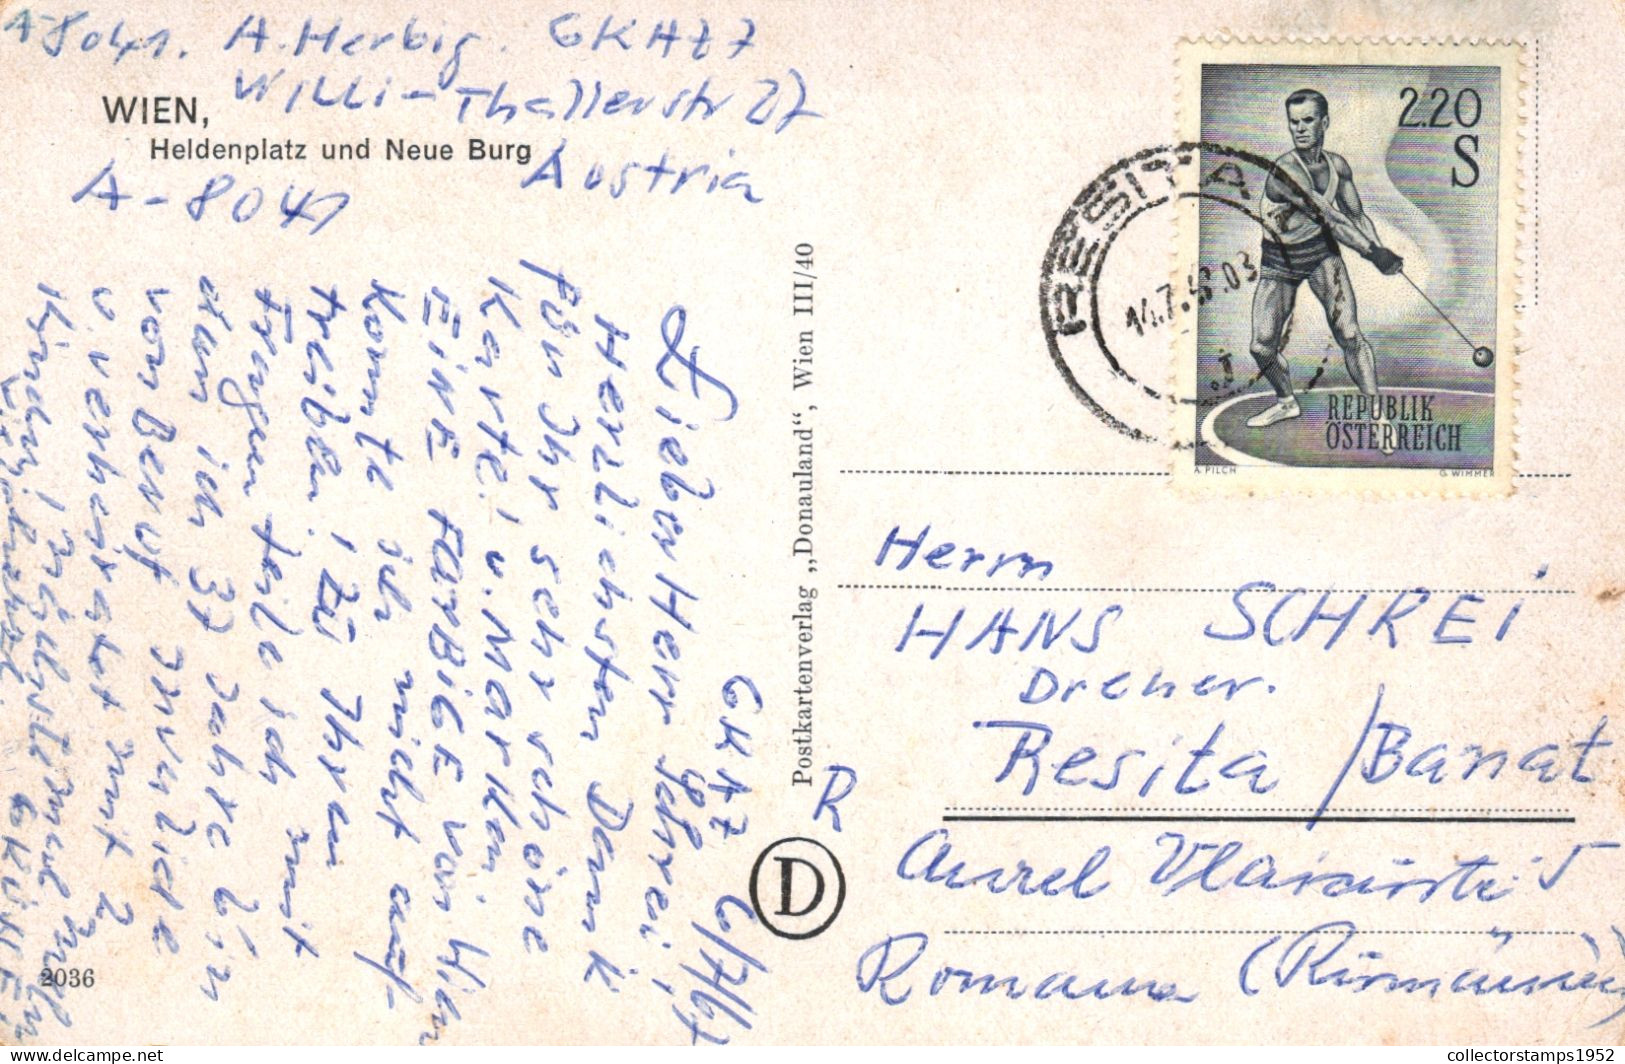 A-8041. A. Herbig. GKAZ7
Willi-Thallerstr 27
Austria
A-8041
WIEN,
Heldenplatz und Neue Burg
GRAZ 6/7/67
Lieber Herr Schrei,
Herzlichsten Dank
für Ihr sehr schöne
Karte, u. Marken,
EINE FARBIGE von Wien
konnte ich nicht auf-
treiben! Zu Ihren
Fragen teile ich mit
dan ich 37 Jahre bin
von Beruf
u. verheiratet mit 2
Kindern!
2036
Postkartenverlag „Donauland“, Wien III/40
D
RESITA
14.7. 03
2.20
S
REPUBLIK
ÖSTERREICH
A. PILCH
G. WIMMER
Herrn
HANS SCHREI
Dreher.
Resita / Banat
R
Aurel 5
Romania (Rumänien)
collectorstamps1952